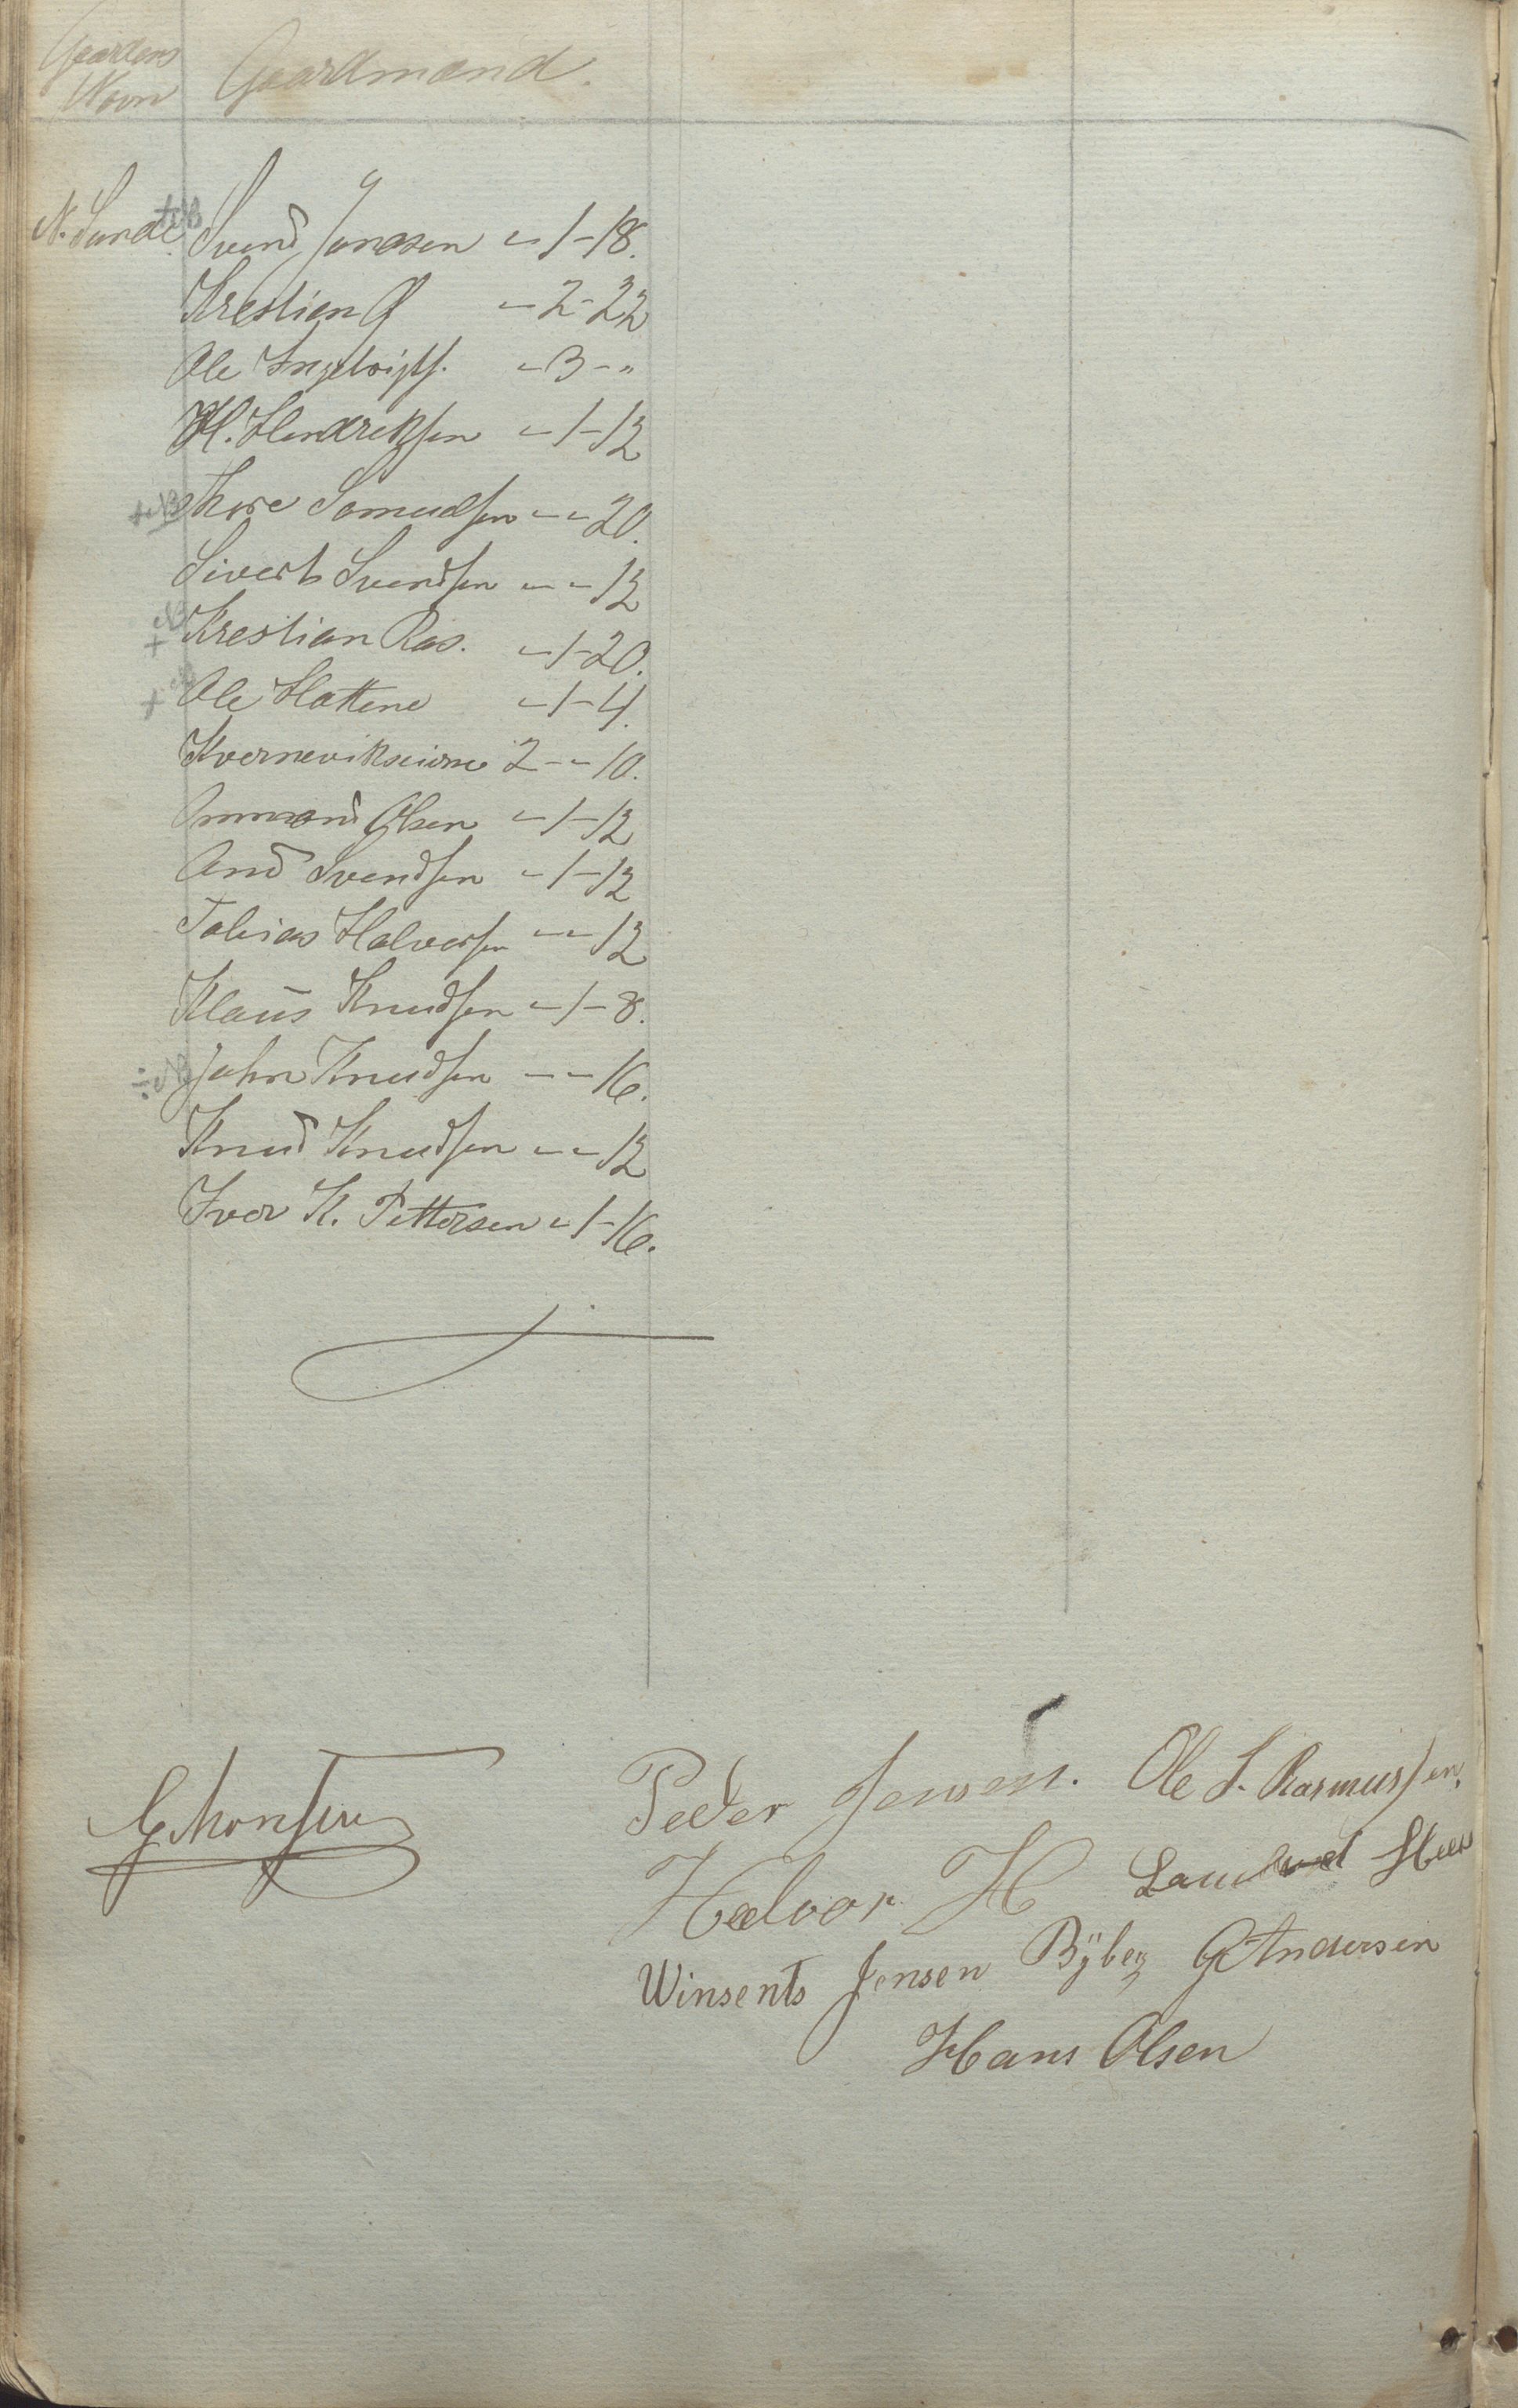 Gaardens Gaardmænd.
Navn
N. Sunde. +NB Svend Jonasen " 1 - 18.
Krestian Q " 2 - 22
Ole Ingebrigts. " 3 - "
H. Hendreksen " 1 - 12
+NB Thore Samuelsen " - " 20.
Sivert Svendsen " - " 12
+NB Krestian Ras. " 1 - 20.
+NB Ole Hattene " 1 - 4.
Kvernevikseierne 2 - " 10.
Ommund Olsen " 1 - 12
And Svendsen " 1 - 12
Tobias Halversen " - " 12
Klaus Knudsen " 1 - 8.
÷NB John Knudsen " - " 16.
Knud Knudsen " - " 12
Iver K. Pettersen " 1 - 16.
G Monsen Peder Jensen. Ole S. Rasmussen.
Halvor H
Winsents Jensen Byberg G Andersen
Hans Olsen